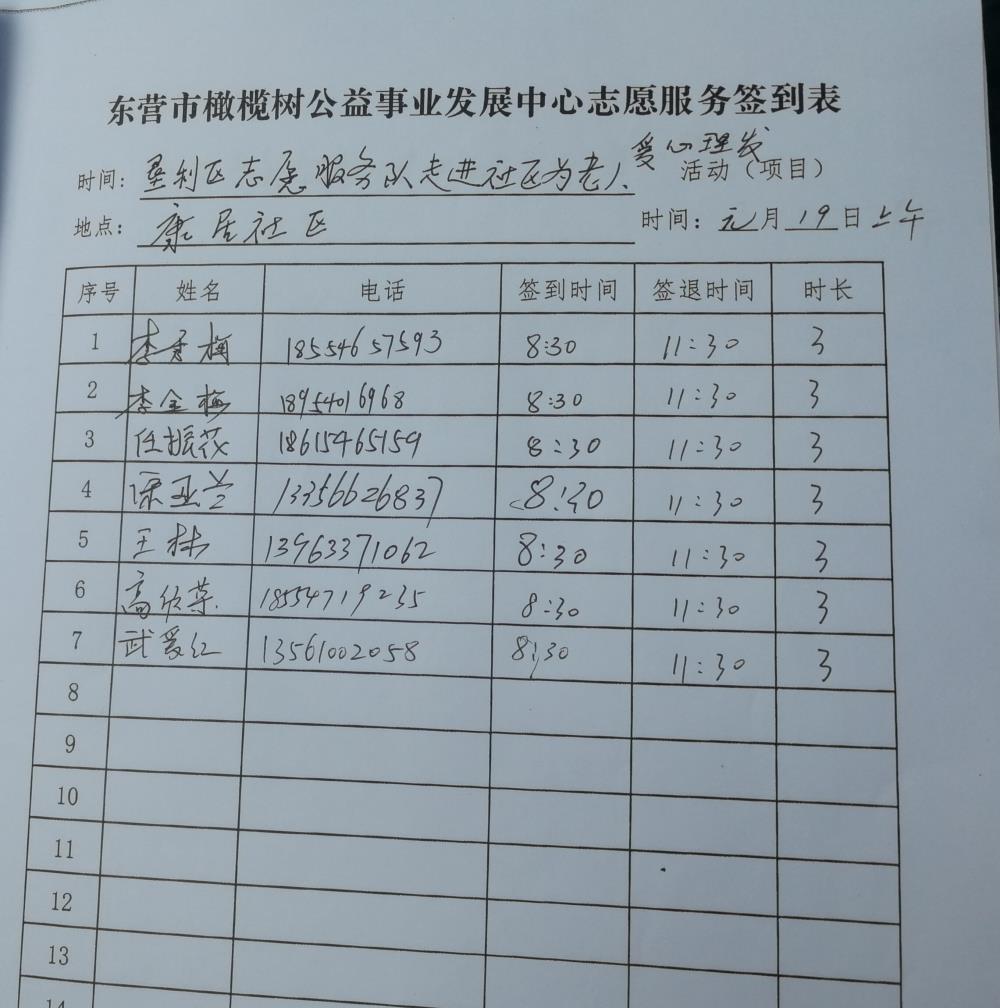 东营市橄榄树公益事业发展中心志愿服务签到表
时间：垦利区志愿服务队走进社区为老人爱心理发 活动（项目）
地点：康居社区 时间：元月19日上午
序号 姓名 电话 签到时间 签退时间 时长
1 李秀梅 18554657593 8:30 11:30 3
2 李金梅 18954016968 8:30 11:30 3
3 任振花 18615465159 8:30 11:30 3
4 亚兰 13356626837 8:30 11:30 3
5 王林 13963371062 8:30 11:30 3
6 高欣荣 18554719235 8:30 11:30 3
7 武爱红 13561002058 8:30 11:30 3
8
9
10
11
12
13
14